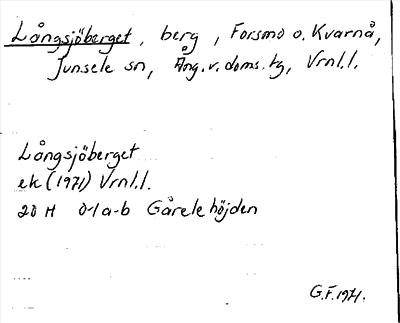 Långsjöberget, berg, Forsmo o. Kvarnå,
Junsele sn, Ång.v.doms.tg, Vrnl.l.
Långsjöberget
ek (1971) Vrnl.l.
20 H 0-1 a-b Gårelehöjden
G.F. 1971.